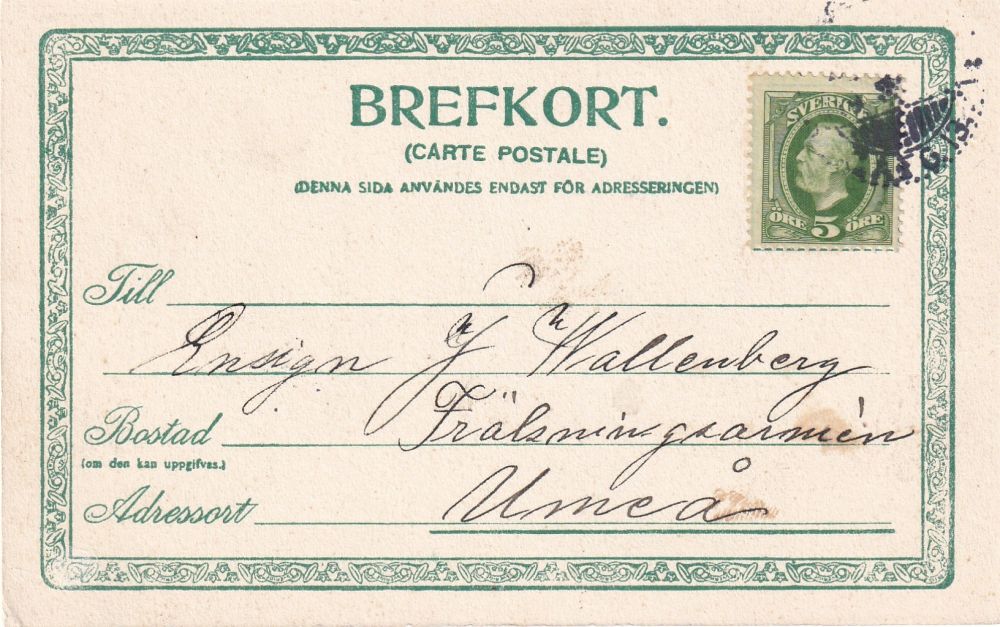 BREFKORT.
(CARTE POSTALE)
(DENNA SIDA ANVÄNDES ENDAST FÖR ADRESSERINGEN)
SVERIGE
ÖRE 5 ÖRE
Till
Ensign J Wallenberg
Bostad Frälsningsarmén
(om den kan uppgifvas.)
Adressort Umeå